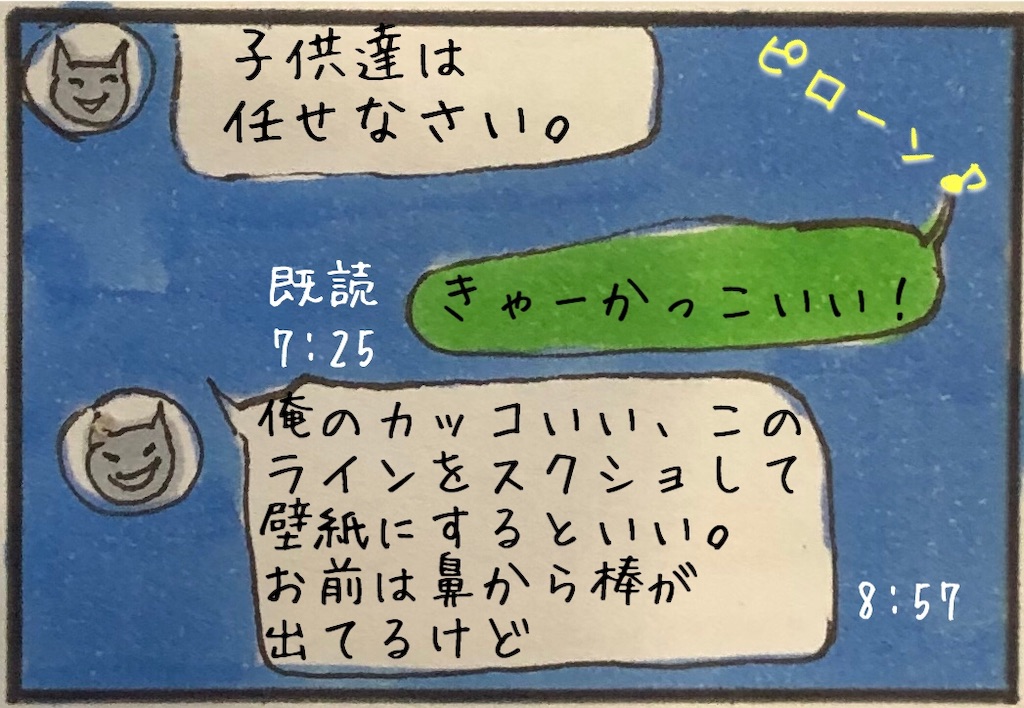 子供達は
任せなさい。
ピローン♪
きゃーかっこいい!
既読
7:25
俺のカッコいい、この
ラインをスクショして
壁紙にするといい。
お前は鼻から棒が
出てるけど
8:57